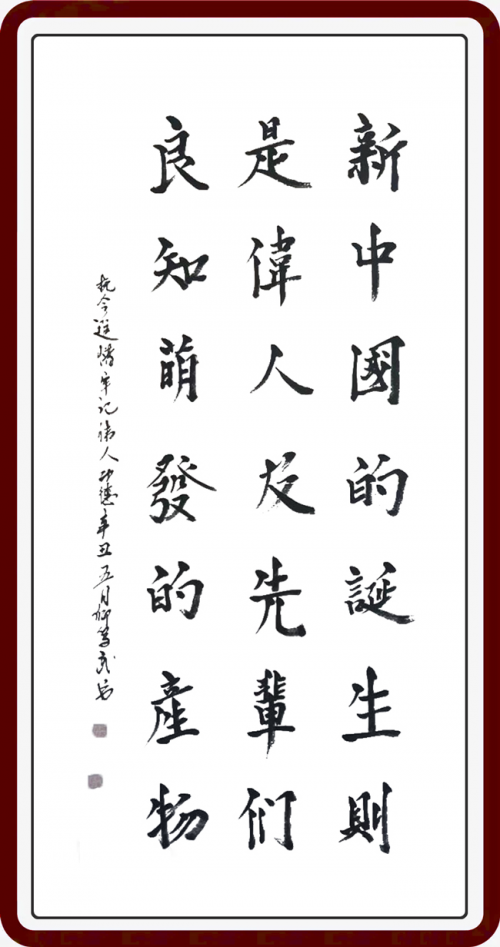 新中國的誕生則
是偉人及先輩们
良知萌發的產物
撫今追惜牢记伟人功德辛丑五月柳学武书